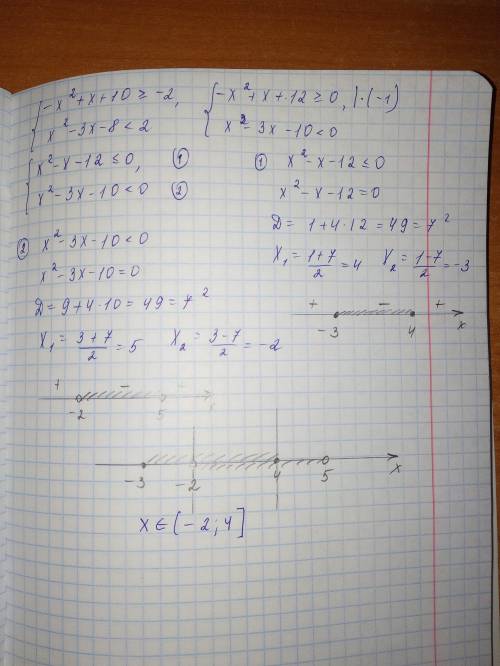 { -x²+x+10 ≥ -2, { -x²+x+12 ≥ 0, |·(-1)
x²-3x-8 < 2 x²-3x-10 < 0
{ x²-x-12 ≤ 0, ①
x²-3x-10 < 0 ②
① x²-x-12 ≤ 0
x²-x-12 = 0
D = 1+4·12 = 49 = 7²
x₁ = (1+7)/2 = 4 x₂ = (1-7)/2 = -3
+ - +
-3 4 x
② x²-3x-10 < 0
x²-3x-10 = 0
D = 9+4·10 = 49 = 7²
x₁ = (3+7)/2 = 5 x₂ = (3-7)/2 = -2
+ - +
-2 5 x
-3 -2 4 5 x
x ∈ [-2; 4]